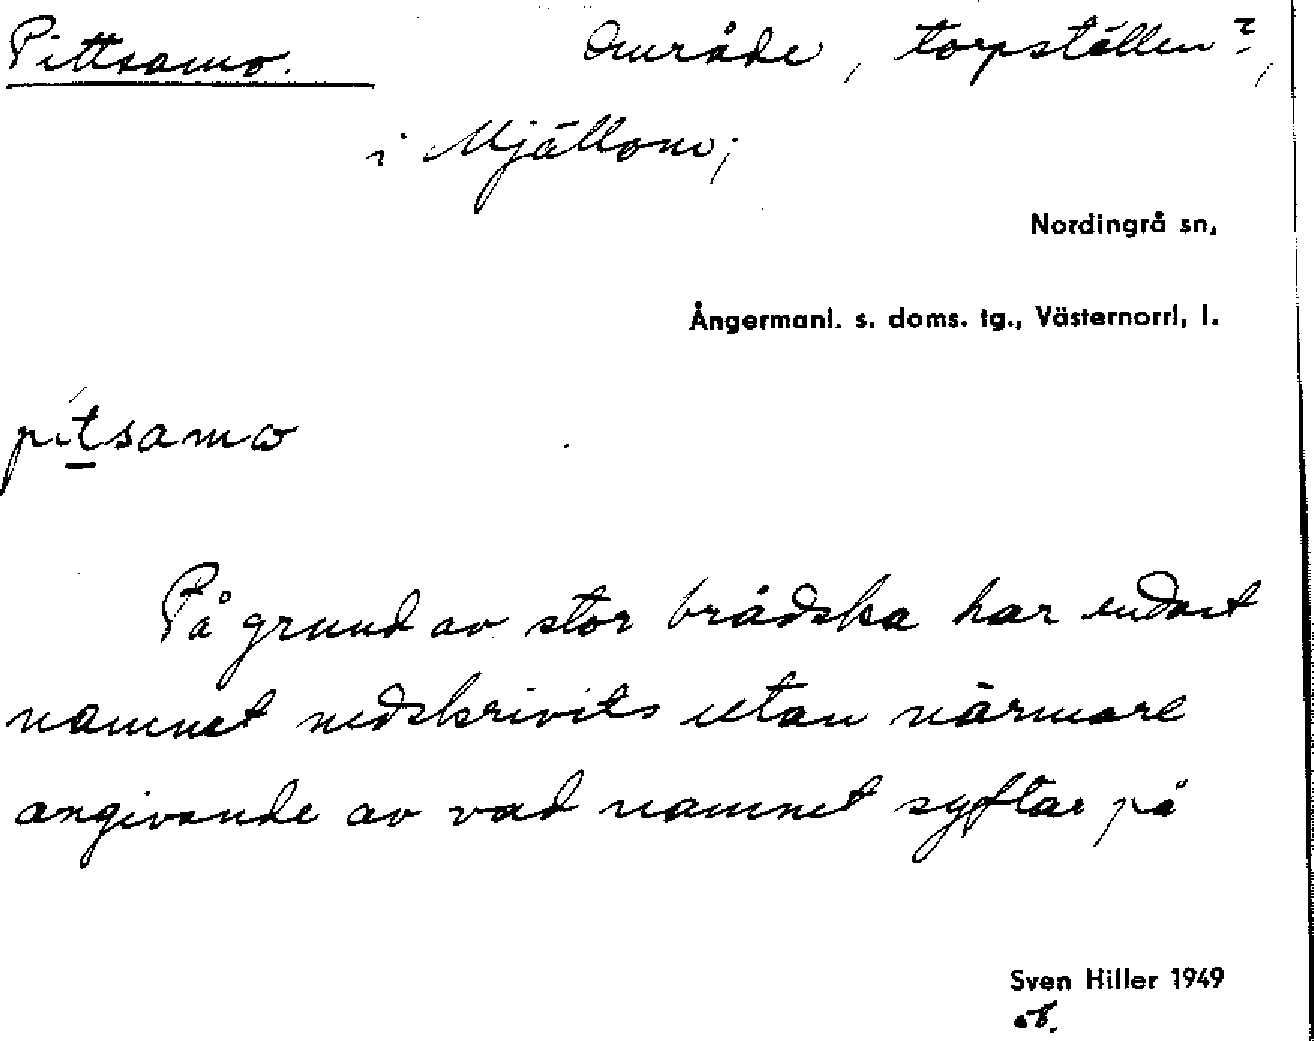 Pittsamo. Område, torpställen?,
i Mjällom;
Nordingrå sn,
Ångermanl. s. doms. tg., Västernorrl, l.
pítsamω
På grund av stor brådska har endast
namnet nedskrivits utan närmare
angivande av vad namnet syftar på
Sven Hiller 1949